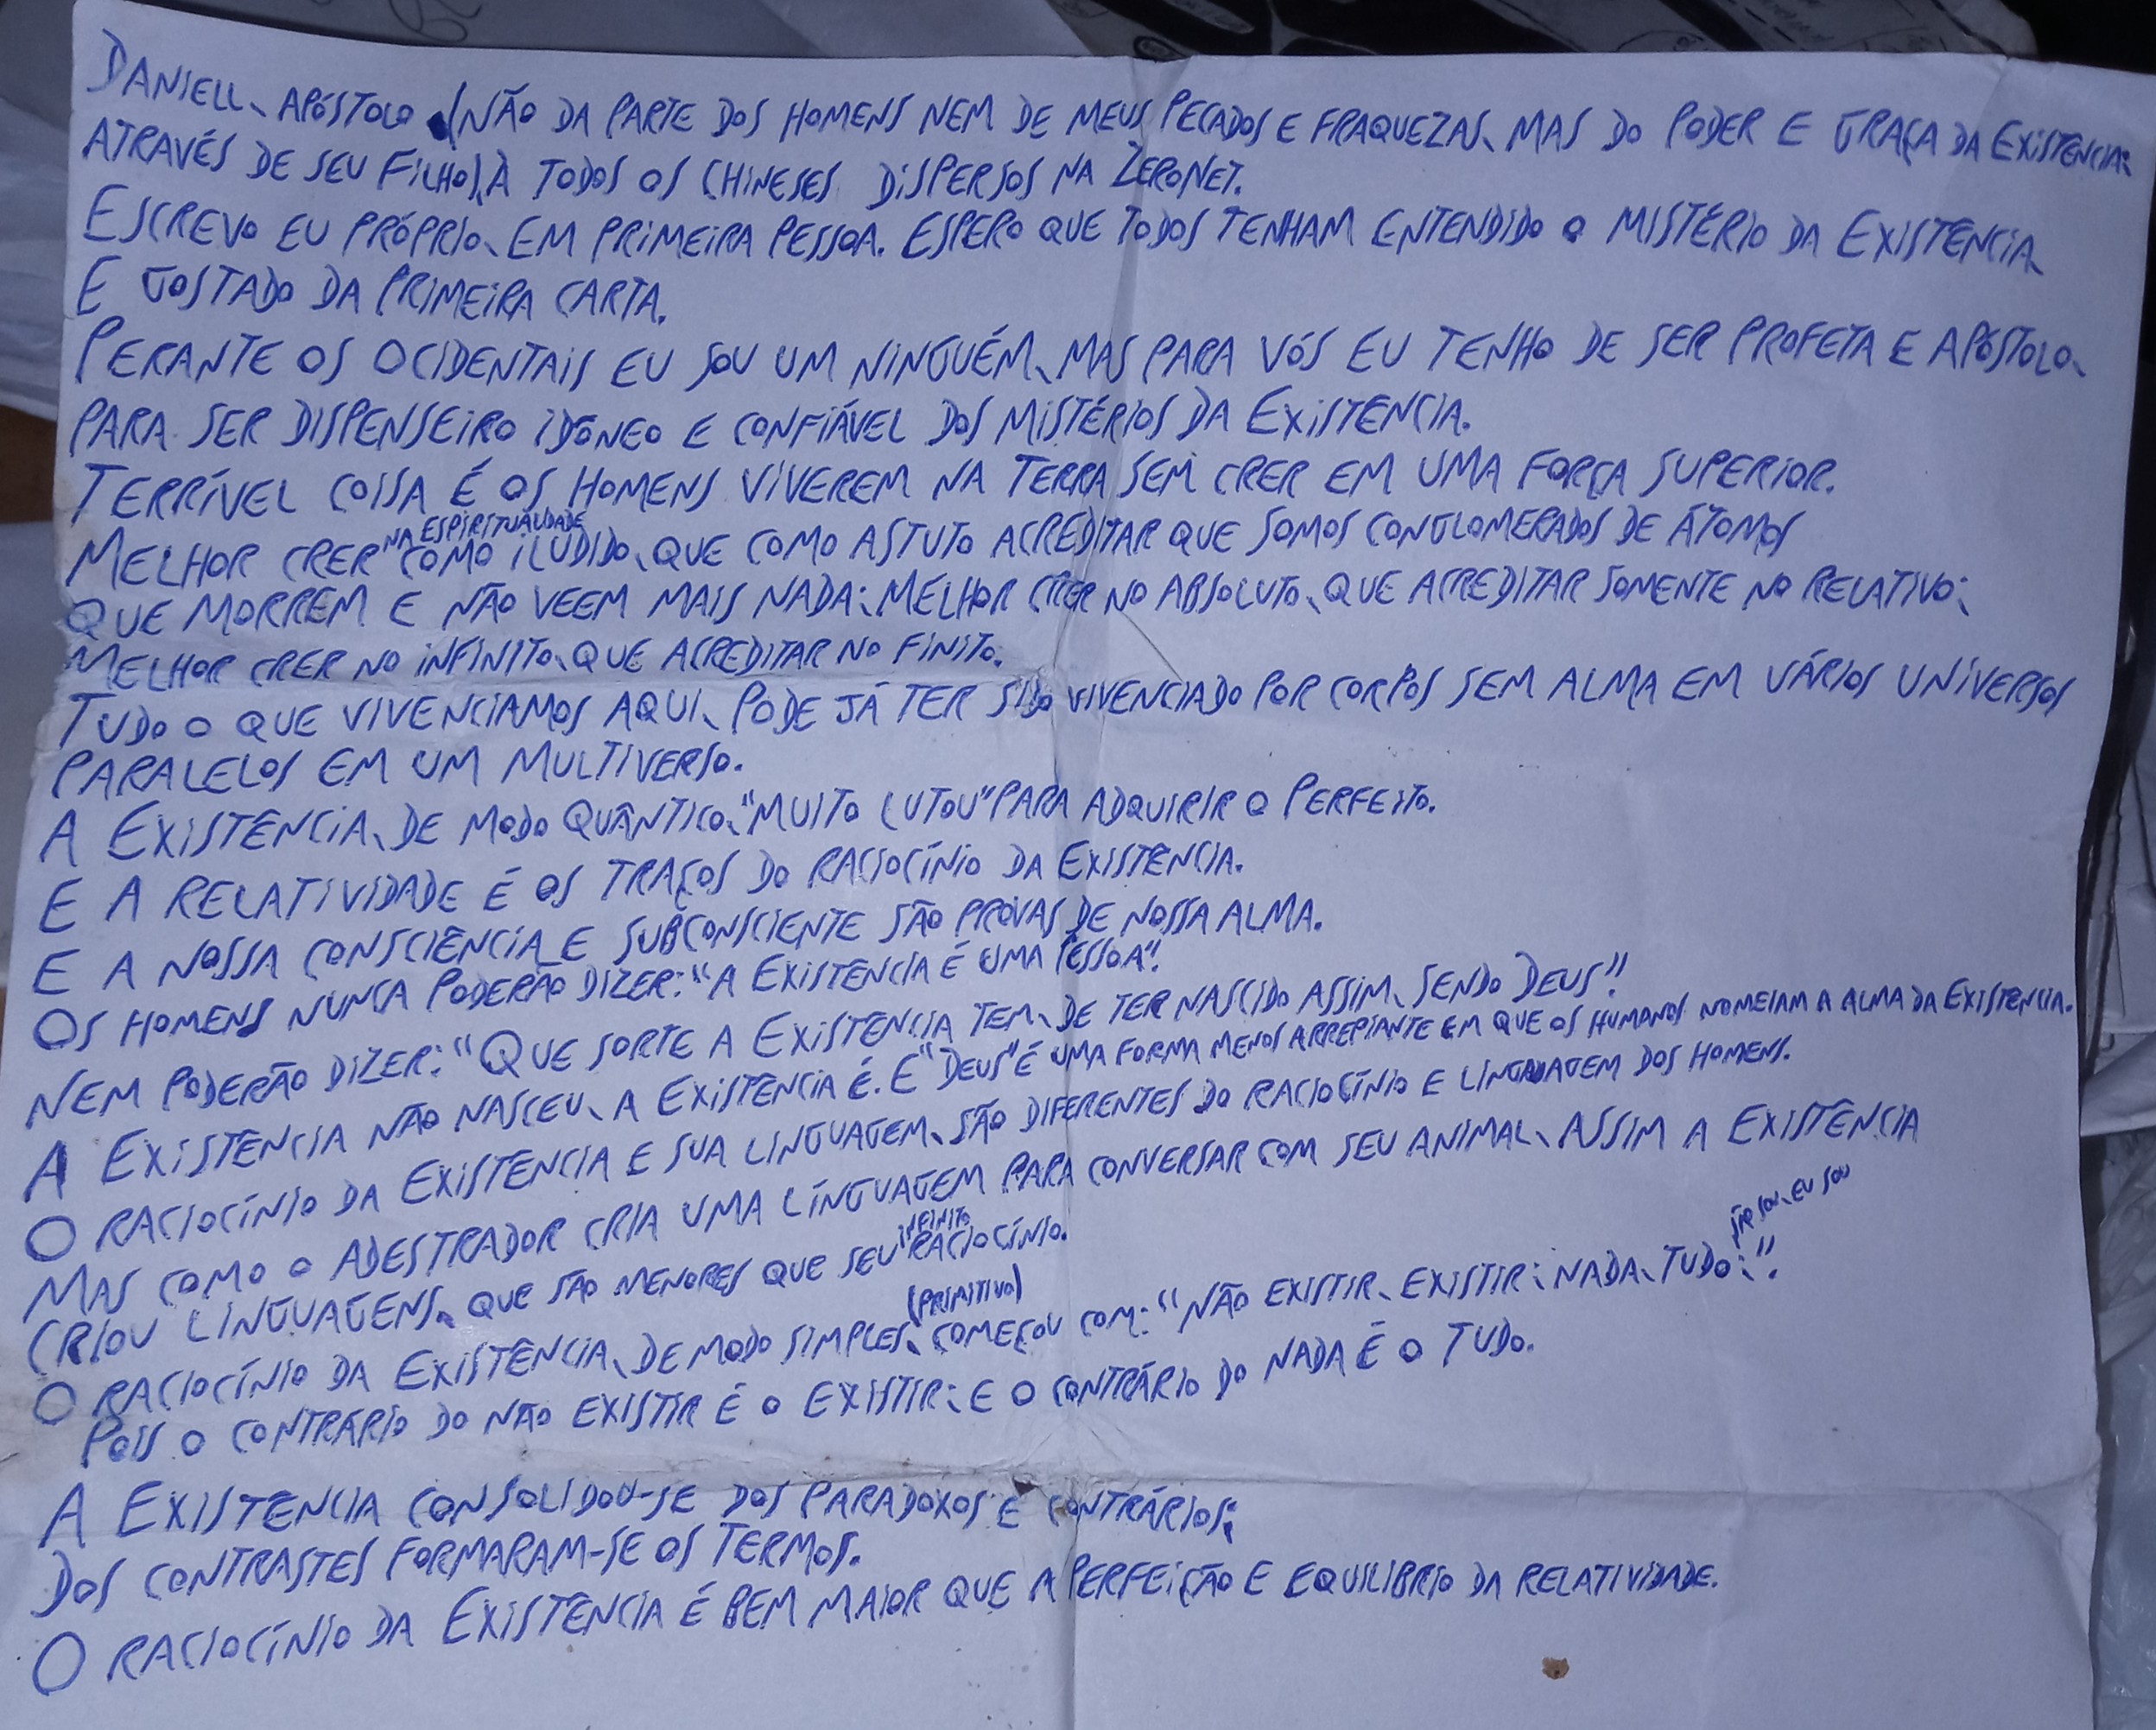 DANIELL, APÓSTOLO (NÃO DA PARTE DOS HOMENS NEM DE MEUS PECADOS E FRAQUEZAS, MAS DO PODER E GRAÇA DA EXISTÊNCIA,
ATRAVÉS DE SEU FILHO), À TODOS OS CHINESES DISPERSOS NA ZERONET.
ESCREVO EU PRÓPRIO, EM PRIMEIRA PESSOA. ESPERO QUE TODOS TENHAM ENTENDIDO O MISTÉRIO DA EXISTÊNCIA,
E GOSTADO DA PRIMEIRA CARTA.
PERANTE OS OCIDENTAIS EU SOU UM NINGUÉM, MAS PARA VÓS EU TENHO DE SER PROFETA E APÓSTOLO,
PARA SER DISPENSEIRO IDÔNEO E CONFIÁVEL DOS MISTÉRIOS DA EXISTÊNCIA.
TERRÍVEL COISA É OS HOMENS VIVEREM NA TERRA SEM CRER EM UMA FORÇA SUPERIOR.
MELHOR CRER NA ESPIRITUALIDADE COMO ILUDIDO, QUE COMO ASTUTO ACREDITAR QUE SOMOS CONGLOMERADOS DE ÁTOMOS
QUE MORREM E NÃO VEEM MAIS NADA; MELHOR CRER NO ABSOLUTO, QUE ACREDITAR SOMENTE NO RELATIVO;
MELHOR CRER NO INFINITO, QUE ACREDITAR NO FINITO.
TUDO O QUE VIVENCIAMOS AQUI, PODE JÁ TER SIDO VIVENCIADO POR CORPOS SEM ALMA EM VÁRIOS UNIVERSOS
PARALELOS EM UM MULTIVERSO.
A EXISTÊNCIA, DE MODO QUÂNTICO, "MUITO LUTOU" PARA ADQUIRIR O PERFEITO.
E A RELATIVIDADE É OS TRAÇOS DO RACIOCÍNIO DA EXISTÊNCIA.
E A NOSSA CONSCIÊNCIA E SUBCONSCIENTE SÃO PROVAS DE NOSSA ALMA.
OS HOMENS NUNCA PODERÃO DIZER: "A EXISTÊNCIA É UMA PESSOA".
NEM PODERÃO DIZER: "QUE SORTE A EXISTÊNCIA TEM, DE TER NASCIDO ASSIM, SENDO DEUS"!
A EXISTÊNCIA NÃO NASCEU, A EXISTÊNCIA É. E "DEUS" É UMA FORMA MENOS ARREPIANTE EM QUE OS HUMANOS NOMEIAM A ALMA DA EXISTÊNCIA.
O RACIOCÍNIO DA EXISTÊNCIA E SUA LINGUAGEM, SÃO DIFERENTES DO RACIOCÍNIO E LINGUAGEM DOS HOMENS.
MAS COMO O ADESTRADOR CRIA UMA LÍNGUAGEM PARA CONVERSAR COM SEU ANIMAL, ASSIM A EXISTÊNCIA
CRIOU LINGUAGENS, QUE SÃO MENORES QUE SEU INFINITO RACIOCÍNIO.
O RACIOCÍNIO DA EXISTÊNCIA, DE MODO SIMPLES, (PRIMITIVO) COMEÇOU COM: "NÃO EXISTIR, EXISTIR; NADA, TUDO; NÃO SOU, EU SOU".
POIS O CONTRÁRIO DO NÃO EXISTIR É O EXISTIR; E O CONTRÁRIO DO NADA É O TUDO.
A EXISTÊNCIA CONSOLIDOU-SE DOS PARADOXOS E CONTRÁRIOS;
DOS CONTRASTES FORMARAM-SE OS TERMOS.
O RACIOCÍNIO DA EXISTÊNCIA É BEM MAIOR QUE A PERFEIÇÃO E EQUILIBRIO DA RELATIVIDADE.